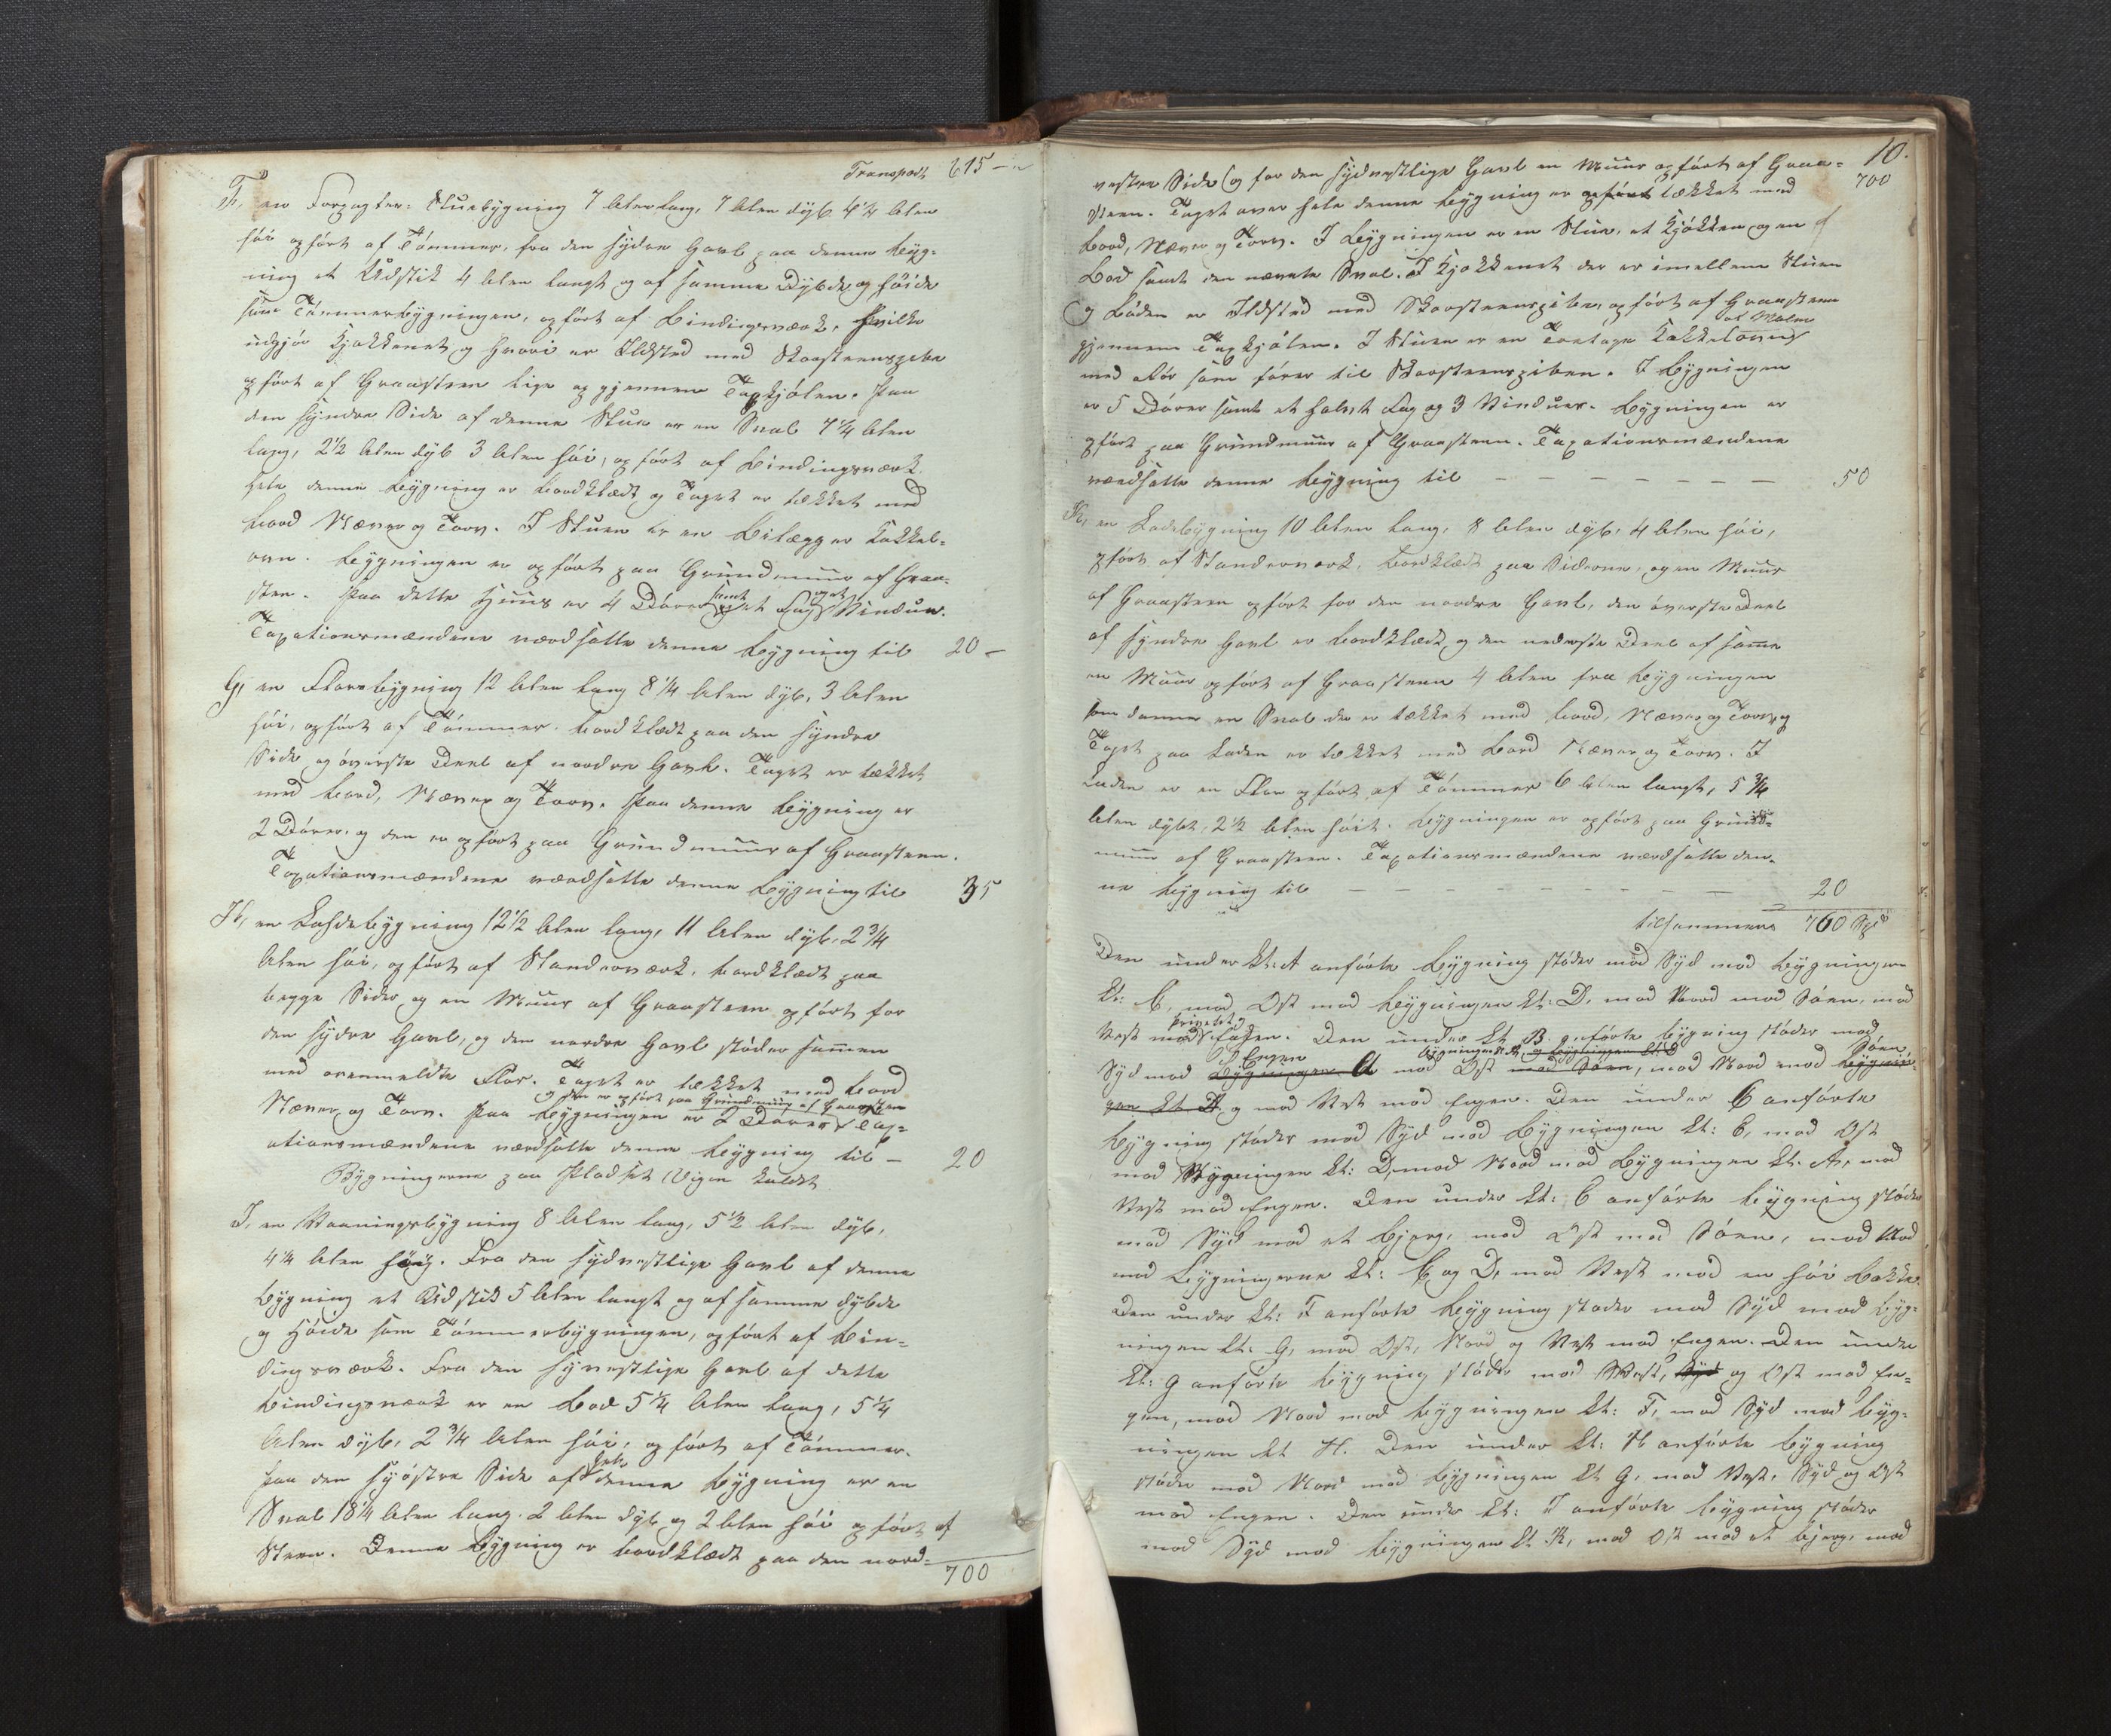 Transport 615 –
F, en Forpagter- Stuebygning 7 Alen lang, 7 Alen dyb 4 1/4 Alen
høi opført af Tømmer, fra den sydre Gavl paa denne Byg-
ning et Udstik 4 Alen langt og af samme Dybde og Høide
som Tømmerbygningen, opført af Bindingsværk, hvilke
udgjør Kjøkkenet og hvori er Ildsted med Skorsteenspibe
opført af Graasteen lige op gjennem Tagkjølen. Paa
den søndre Side af denne Stue er en Sval 7 1/4 Alen
lang, 2 1/2 Alen dyb 3 Alen høi, opført af Bindingsværk.
Hele denne Bygning er bordklædt og Taget er tækket med
Bord Næver og Torv. I Stuen er en Bilægger Kakkel-
ovn. Bygningen er opført paa Grundmuur af Graa-
steen. Paa dette Huus er 4 Døre samt et Fag Vinduer.
Taxationsmændene værdsatte denne Bygning til 20 –
G, en Floerbygning 12 Alen lang 8 1/4 Alen dyb, 3 Alen
høi, opført af Tømmer. bordklædt paa den søndre
Side og øverste Deel af nordre Gavl. Taget er tækket
med Bord, Næver og Torv. Paa denne Bygning er
2 Døre, og den er opført paa Grundmuur af Graasteen.
Taxationsmændene værdsatte denne Bygning til 35
H, en Ladebygning 12 1/2 Alen lang, 11 Alen dyb, 2 3/4
Alen høi, opført af Standerværk, bordklædt paa
begge Sider og en Muur af Graasteen opført for
den sydre Gavl, og den nordre Gavl støder sammen
med ovenmeldte Flor. Taget er tækket med Bord
og den er opført paa Grundmuur af Graasteen
Næver og Torv. Paa Bygningen er 2 Døre Tax-
ationsmændene værdsatte denne Bygning til – 20
Bygningerne paa Pladset Vigen kaldet
I, en Vaaningsbygning 8 Alen lang, 5 1/2 Alen dyb,
4 1/4 Alen høi. Fra den sydvestlige Gavl af denne
Bygning et Udstik 5 Alen langt og af samme Dybde
og Høide som Tømmerbygningen, opført af Bin-
dingsværk. Fra den sydvestlige Gavl af dette
Bindingsværk er en Bod 5 1/4 Alen lang, 5 1/4
Alen dyb, 2 3/4 Alen høi, opført af Tømmer.
Paa den syøstre Side af hele denne Bygning er en
Sval 18 1/4 Alen lang. 2 Alen dyb og 2 Alen høi opført af
Steen. Denne Bygning er bordklædt paa den nord-
700
10.
vestre Side og for den sydvestlige Gavl en Muur opført af Graa- 700
steen. Taget over hele denne Bygning er opført tækket med
Bord, Næver og Torv. I Bygningen er en Stue, et Kjøkken og en
Bod samt den nævnte Sval. I Kjøkkenet der er imellem Stuen
og Boden er Ildsted med Skorsteenspibe, opført af Graasteen
gjennem Tagkjølen. I Stuen er en Toetages Kakkelovn af Malm
med Rør som fører til Skorsteenspiben. I Bygningen
er 5 Døre samt et halvt Fag og 3 Vinduer. Bygningen er
opført paa Grundmuur af Graasteen. Taxationsmændene
værdsatte denne Bygning til – – – – – – – 50
K, en Ladebygning 10 Alen lang, 8 Alen dyb, 4 Alen høi,
opført af Standerværk, bordklædt paa Siderne, og en Muur
af Graasteen opført for den nordre Gavl, den øverste Deel
af søndre Gavl er bordklædt og den nederste Deel af samme
en Muur opført af Graasteen 4 Alen fra Bygningen
som danner en Sval der er tækket med Bord, Næver og Torv, og
Taget paa Laden er tækket med Bord Næver og Torv. I
Laden er en Flor opført af Tømmer 6 Alen langt, 5 3/4
Alen dybt, 2 1/2 Alen høit. Bygningen er opført paa Grund-
muur af Graasteen. Taxationsmændene værdsatte den-
ne Bygning til – – – – – – – 20
tilsammen 760 Spd
Den under Lt: A anførte Bygning støder mod Syd mod Bygningen
Lt: C, mod Ost mod Bygningen Lt: D, mod Nord mod Søen, mod
Vest mod Søen. Den under Lt B anførte Bygning støder mod
Syd mod Engen Bygningen A mod Ost med Søen, mod Nord mod Søen Bygnin-
gen Lt D og mod Vest mod Engen. Den under C anførte
Bygning støder mod Syd mod Bygningen Lt: E, mod Ost
mod Bygningen Lt: D, mod Nord mod Bygningen Lt. A, mod
Vest mod Engen. Den under Lt: E anførte Bygning støder
mod Syd mod et Bjerg, mod Ost mod Søen, mod Nord
mod Bygningerne Lt: C og D, mod Vest mod en høi Bakke.
Den under Lt: F anførte Bygning støder mod Syd mod Byg-
ningen Lt. G, mod Ost, Nord og Vest mod Engen. Den under
Lt: G anførte Bygning støder mod Vest, Syd og Ost mod En-
gen, mod Nord mod Bygningen Lt: F, mod Syd mod Byg-
ningen Lt H. Den under Lt: H anførte Bygning
støder mod Nord mod Bygningen Lt G, mod Vest, Syd og Ost
mod Engen. Den under Lt: I anførte Bygning støder
mod Syd mod Bygningen Lt K, mod Ost mod et Bjerg, mod